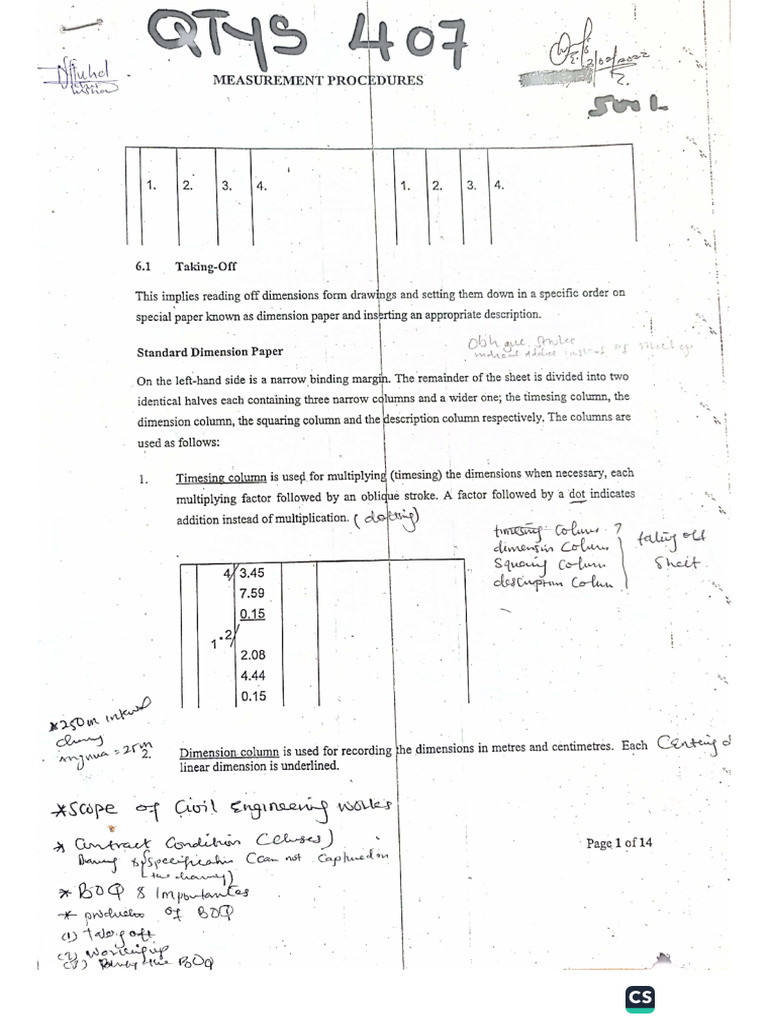 QTYS 407
MEASUREMENT PROCEDURES
500 L
1. 2. 3. 4. 1. 2. 3. 4.
6.1 Taking-Off
This implies reading off dimensions form drawings and setting them down in a specific order on
special paper known as dimension paper and inserting an appropriate description.
Oblique stroke
Standard Dimension Paper
On the left-hand side is a narrow binding margin. The remainder of the sheet is divided into two
identical halves each containing three narrow columns and a wider one; the timesing column, the
dimension column, the squaring column and the description column respectively. The columns are
used as follows:
1. Timesing column is used for multiplying (timesing) the dimensions when necessary, each
multiplying factor followed by an oblique stroke. A factor followed by a dot indicates
addition instead of multiplication. (dotting)
timesing Column ?
dimension Column
Squaring Column
description Column
taking off
Sheet
4/ 3.45
7.59
0.15
1.2/
2.08
4.44
0.15
*250m
= 25m
2. Dimension column is used for recording the dimensions in metres and centimetres. Each
linear dimension is underlined.
* Scope of Civil Engineering Works
* Contract Condition
Page 1 of 14
* BOQ & Importances
* production of BOQ
(1) Taking off
(2) Working up
(3) the BOQ
CS